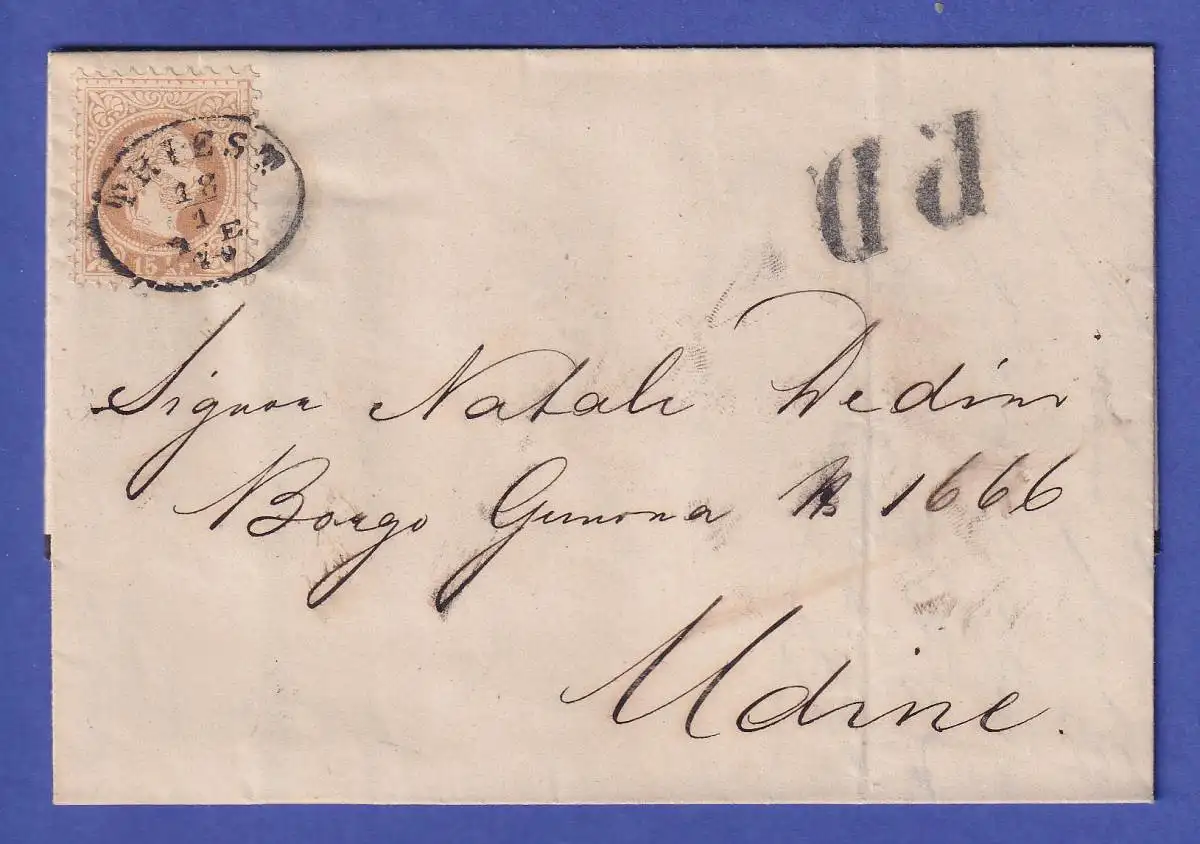 TRIEST
18
1
E
15 KR
PD
Signor Natale Dedini
Borgo Gemona № 1666
Udine.